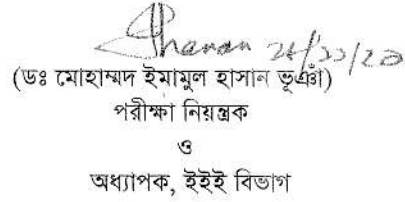 (ডঃ মোহাম্মদ ইমামুল হাসান ভূঞাঁ)
পরীক্ষা নিয়ন্ত্রক
ও
অধ্যাপক, ইইই বিভাগ